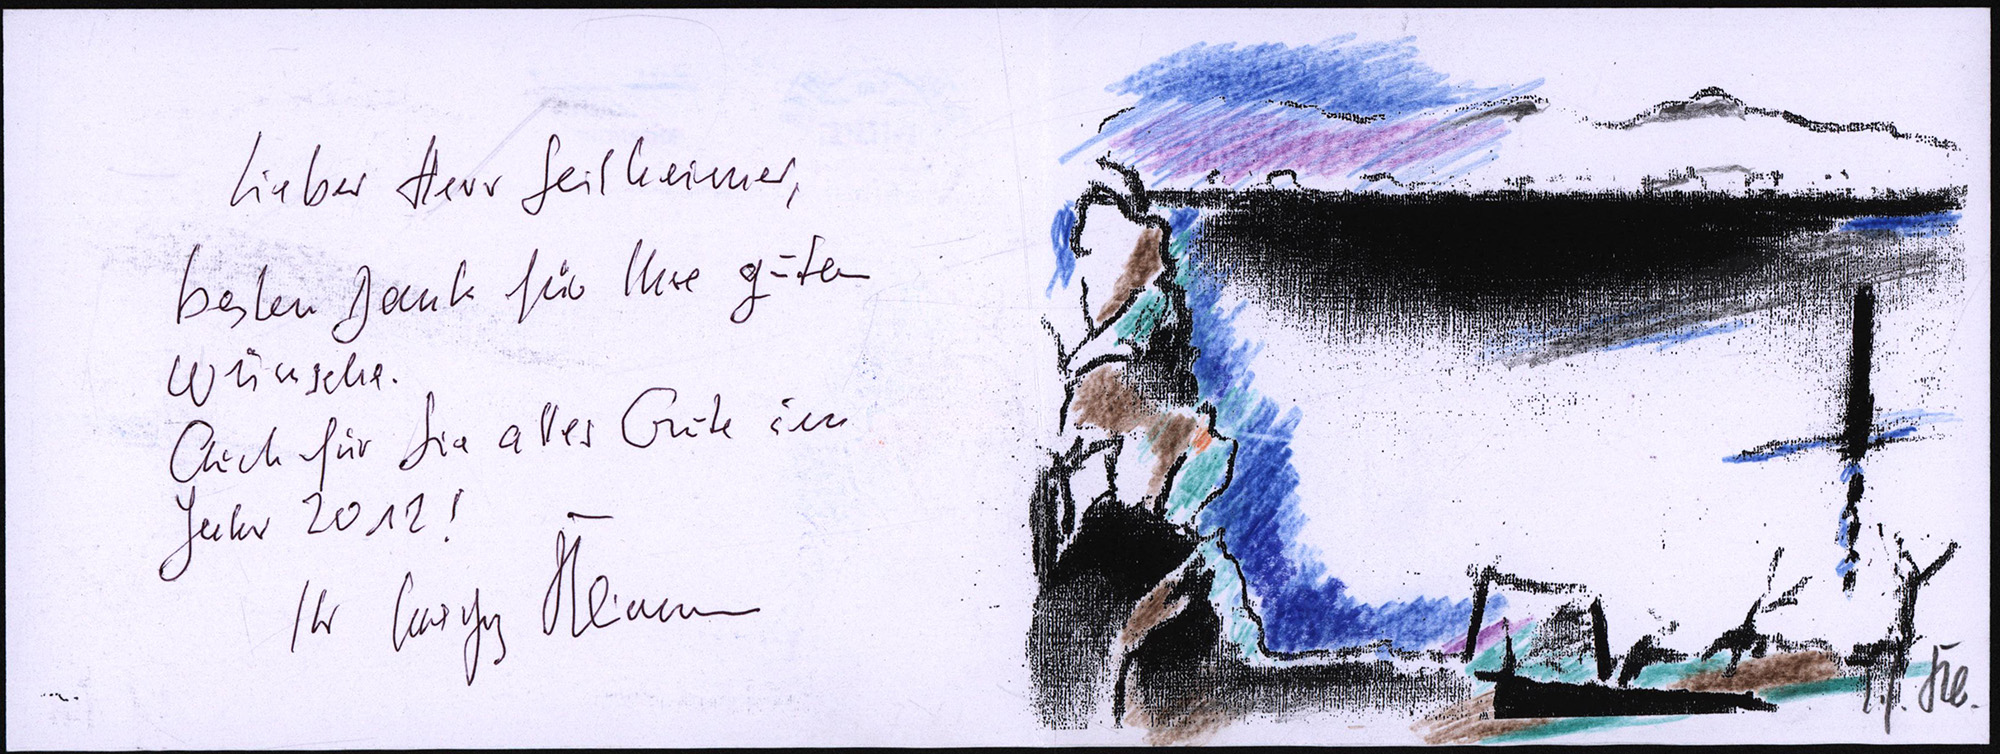 Lieber Herr Geilheimer,
besten Dank für Ihre guten
Wünsche.
Auch für Sie alles Gute im
Jahr 2012!
Ihr